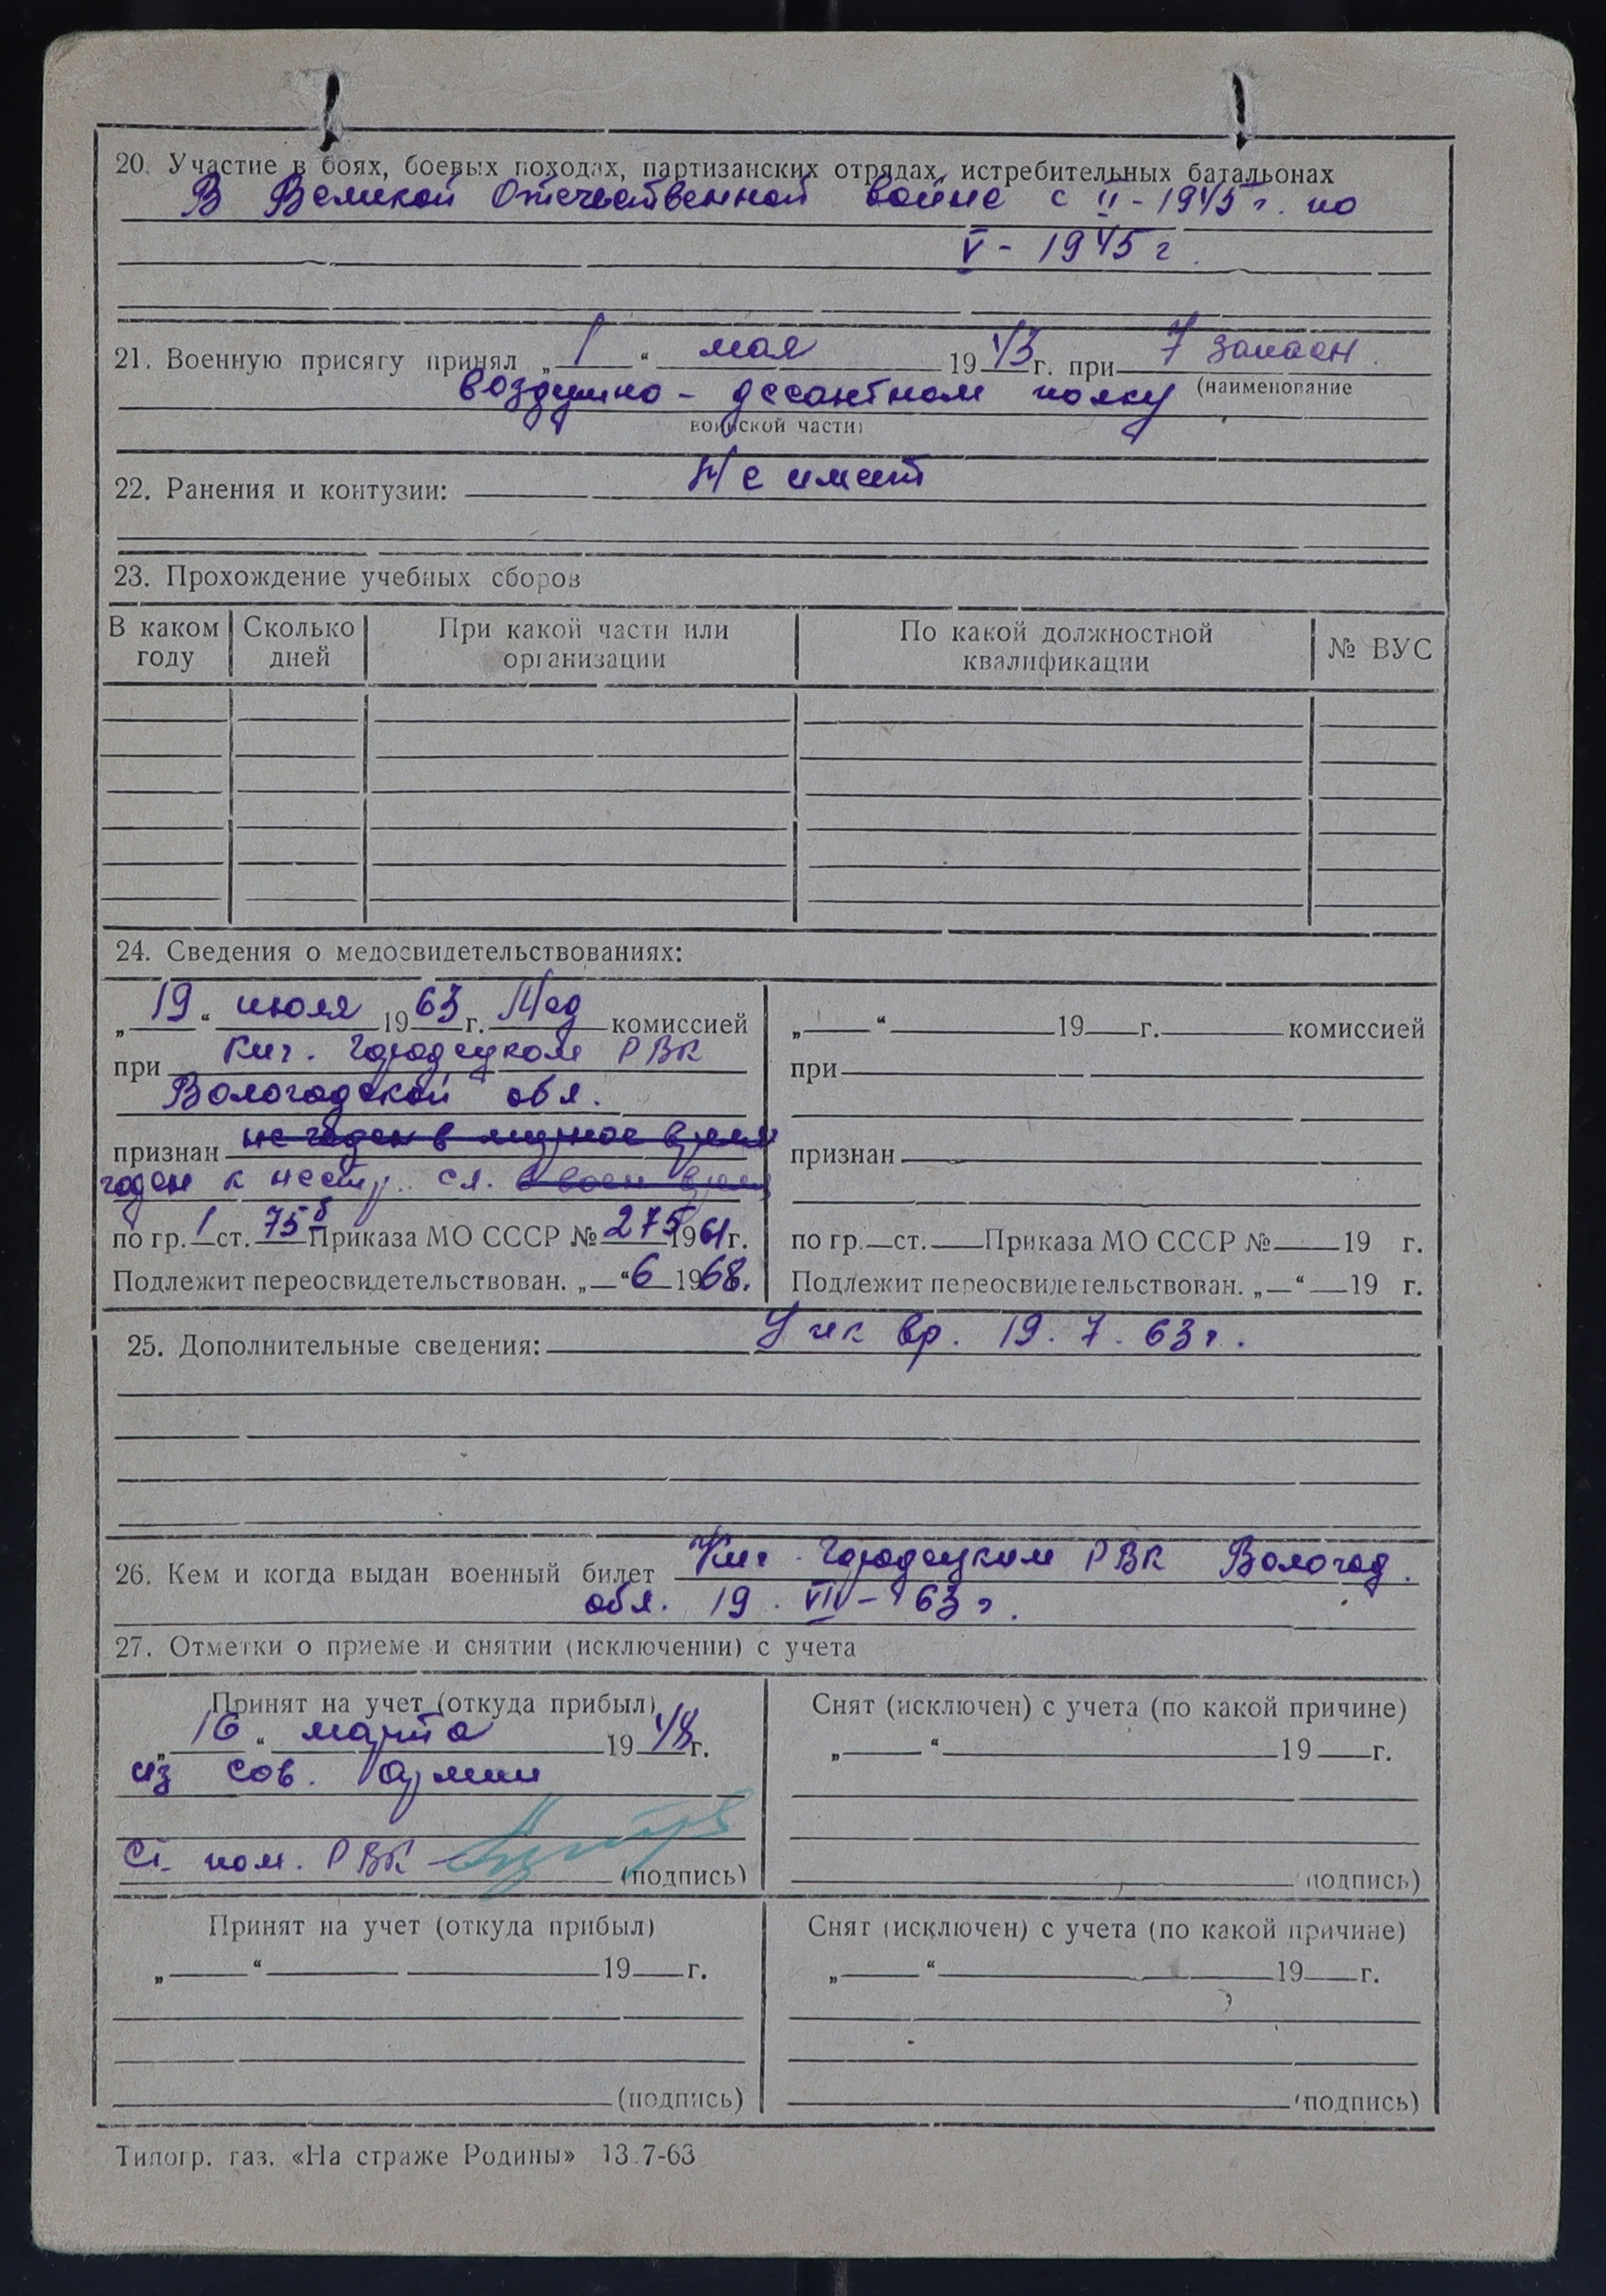 20. Участие в боях, боевых походах, партизанских отрядах, истребительных батальонах
В Великой Отечественной войне с II-1945 г. по
V - 1945 г.
21. Военную присягу принял „ 1 “ мая 1943 г. при 7 запасн.
(наименование
воздушно-десантном полку
воинской части)
22. Ранения и контузии: Не имеет
23. Прохождение учебных сборов
В каком году
Сколько дней
При какой части или организации
По какой должностной квалификации
№ ВУС
24. Сведения о медосвидетельствованиях:
„ 19 “ июля 1963 г. Мед комиссией
при Кич. Городецком РВК
Вологодской обл.
признан не годен в мирное время
годен к нестр. сл. в воен время
по гр. 1 ст. 75б Приказа МО СССР № 275 1961 г.
Подлежит переосвидетельствован. „—“ 6 1968.
„—“ 19 г. комиссией
при
признан
по гр. ст. Приказа МО СССР № 19 г.
Подлежит переосвидетельствован. „—“ 19 г.
25. Дополнительные сведения: вр. 19. 7. 63 г.
26. Кем и когда выдан военный билет Кич. Городецким РВК Вологод.
обл. 19. VII - 63 г.
27. Отметки о приеме и снятии (исключении) с учета
Принят на учет (откуда прибыл)
„ 16 “ марта 1948 г.
из Сов. Армии
Ст. пом. РВК (подпись)
Снят (исключен) с учета (по какой причине)
„—“ 19 г.
(подпись)
Принят на учет (откуда прибыл)
„—“ 19 г.
(подпись)
Снят (исключен) с учета (по какой причине)
„—“ 19 г.
(подпись)
Типогр. газ. «На страже Родины» 13.7-63